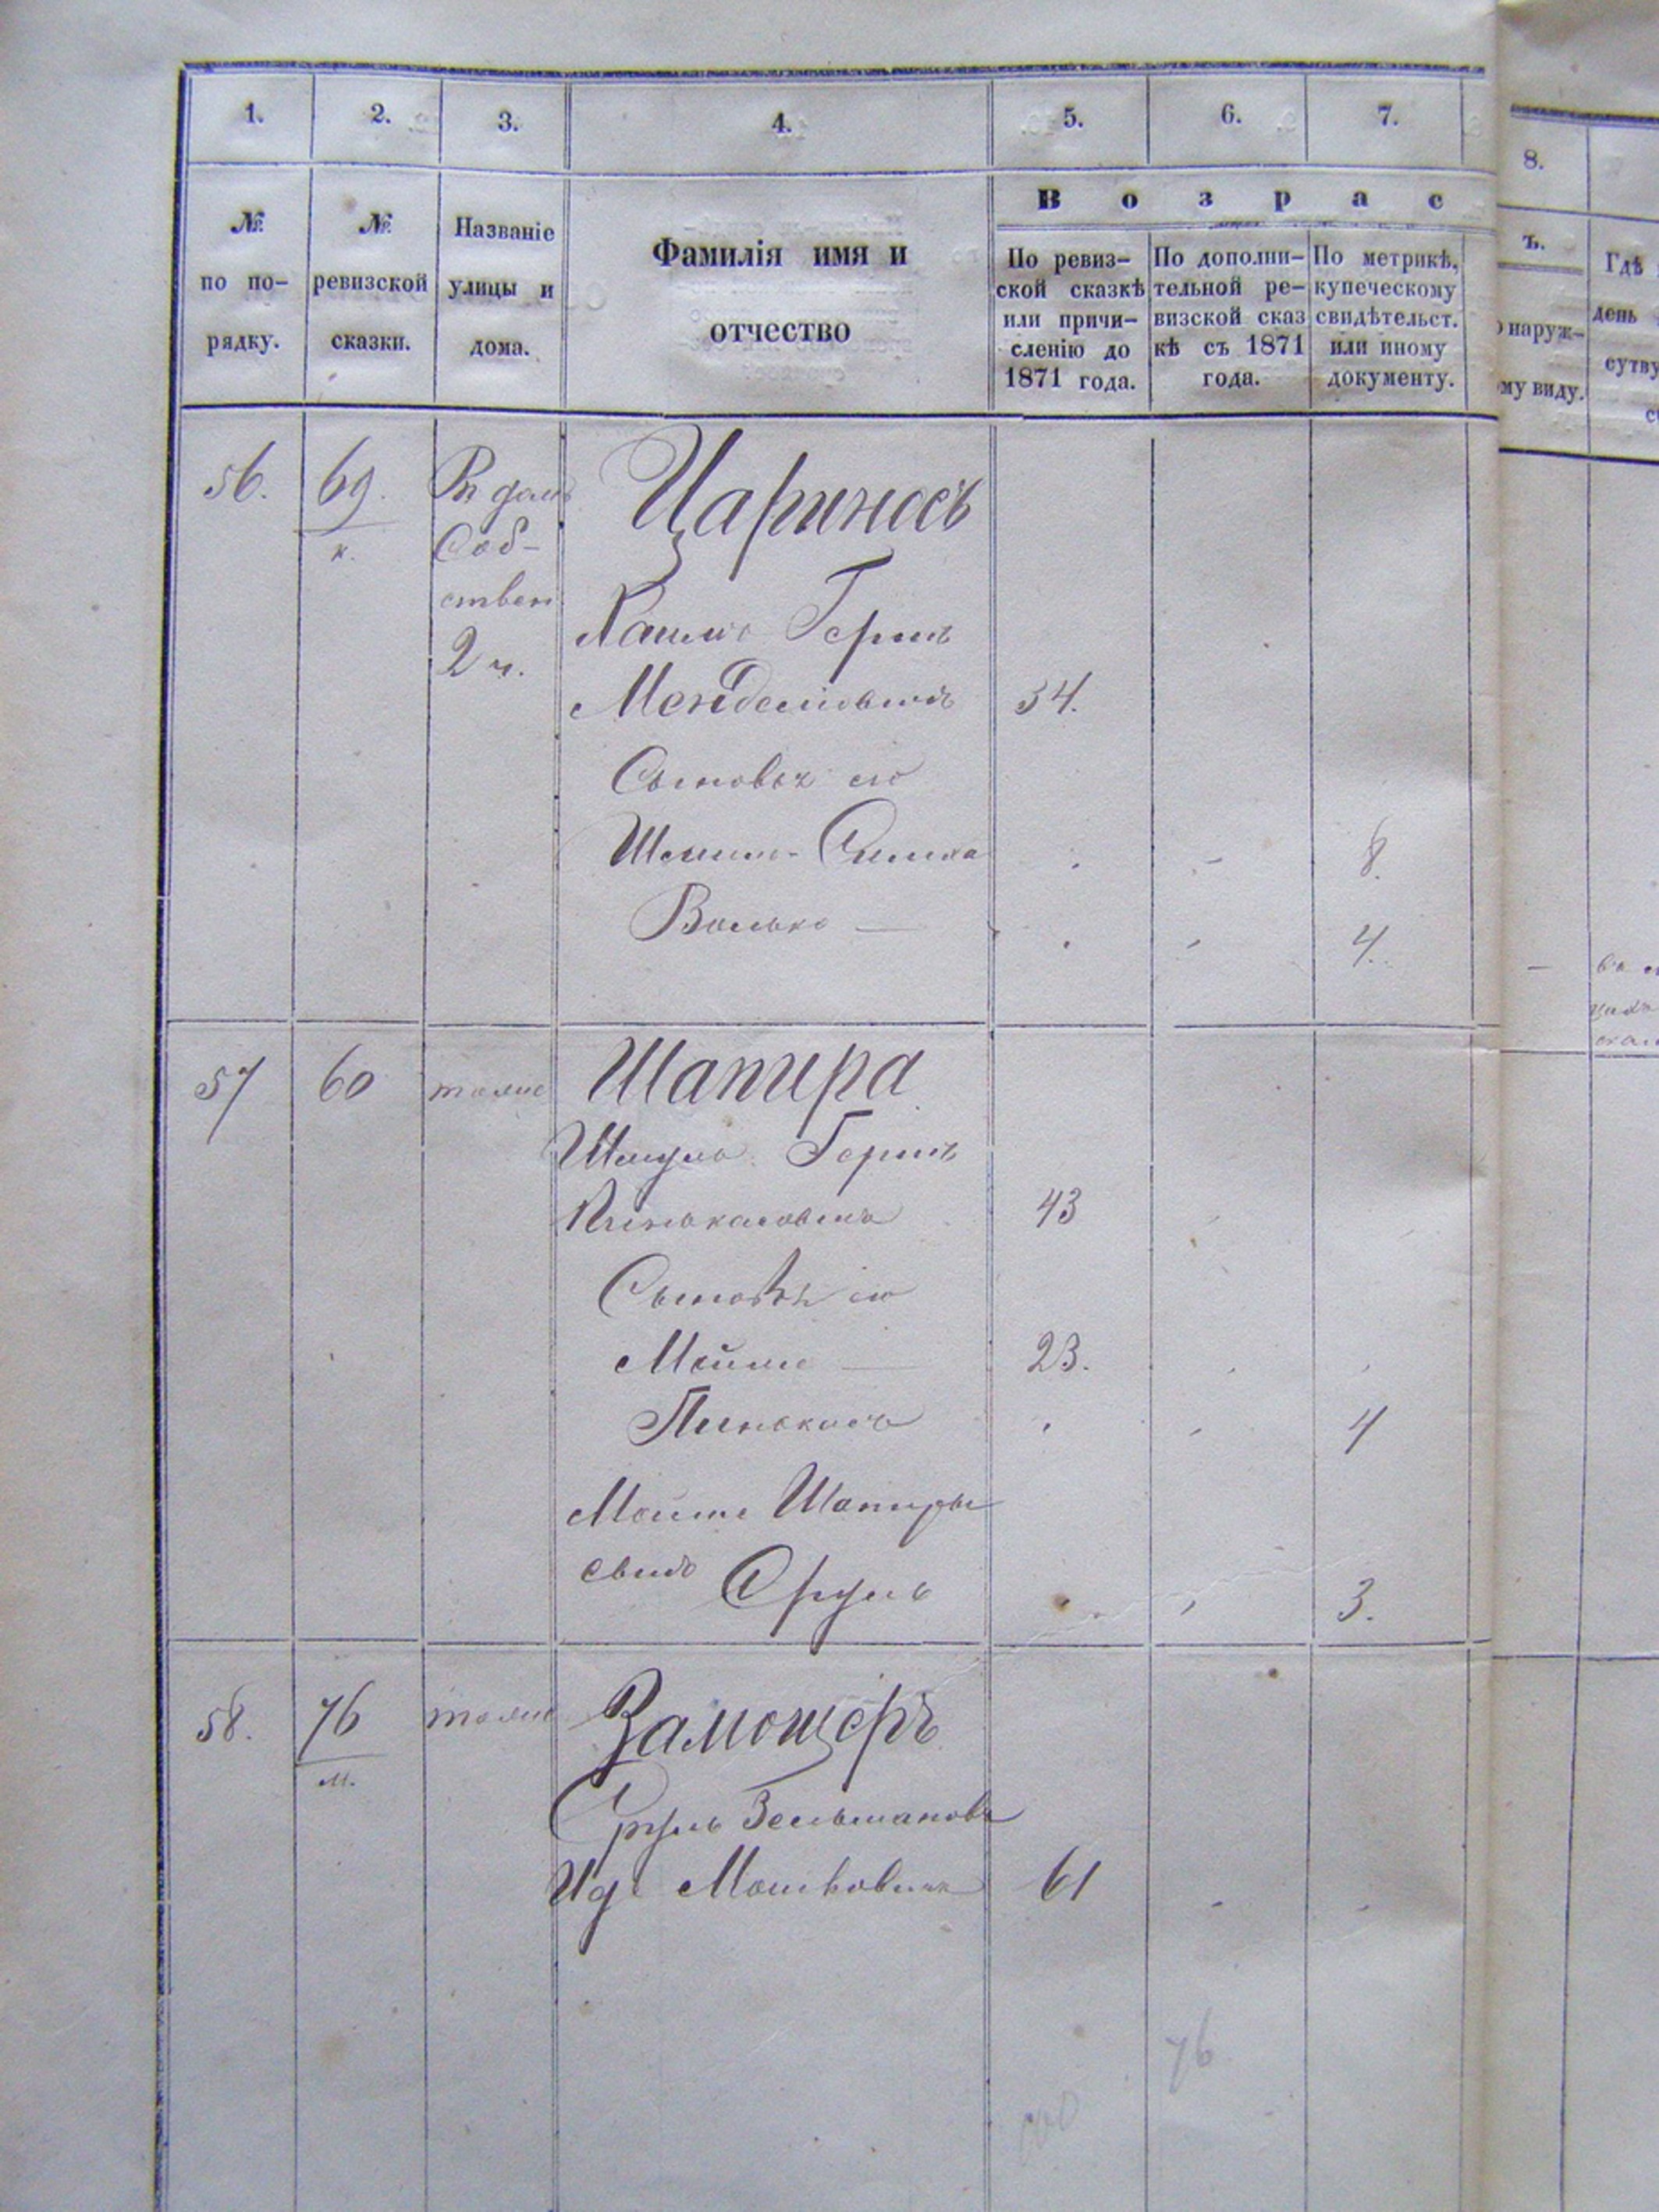 1. 2. 3. 4. 5. 6. 7.
8.
№ по по-рядку.
№ ревизской сказки.
Названіе улицы и дома.
Фамилія имя и отчество
В о з р а с
ъ.
По ревиз-
ской сказкѣ
или причи-
сленію до
1871 года.
По дополни-
тельной ре-
визской сказ
кѣ съ 1871
года.
По метрикѣ,
купеческому
свидѣтельст.
или иному
документу.
о наруж-
ому виду.
Гдѣ
день
сутву
56. 69. Въ дом
к. Соб-
ствен
2 ч.
Герш
Менделевичъ 34.
Сыновья его
Симха 8.
Волько — 4.
57 60 тоже Шапира
Шмуль Герш
Пинькасовичъ 43
Сыновья его
Мойше — 23.
Пинькасъ 4
Мойше Шапиры
сынъ Сруль 3.
58. 76 тоже Замощеръ
м.
Сруль Зельманов
Мошковичъ 61
76